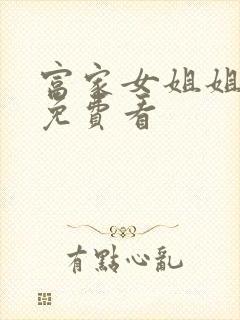 富家女姐姐
免費看
有點心亂